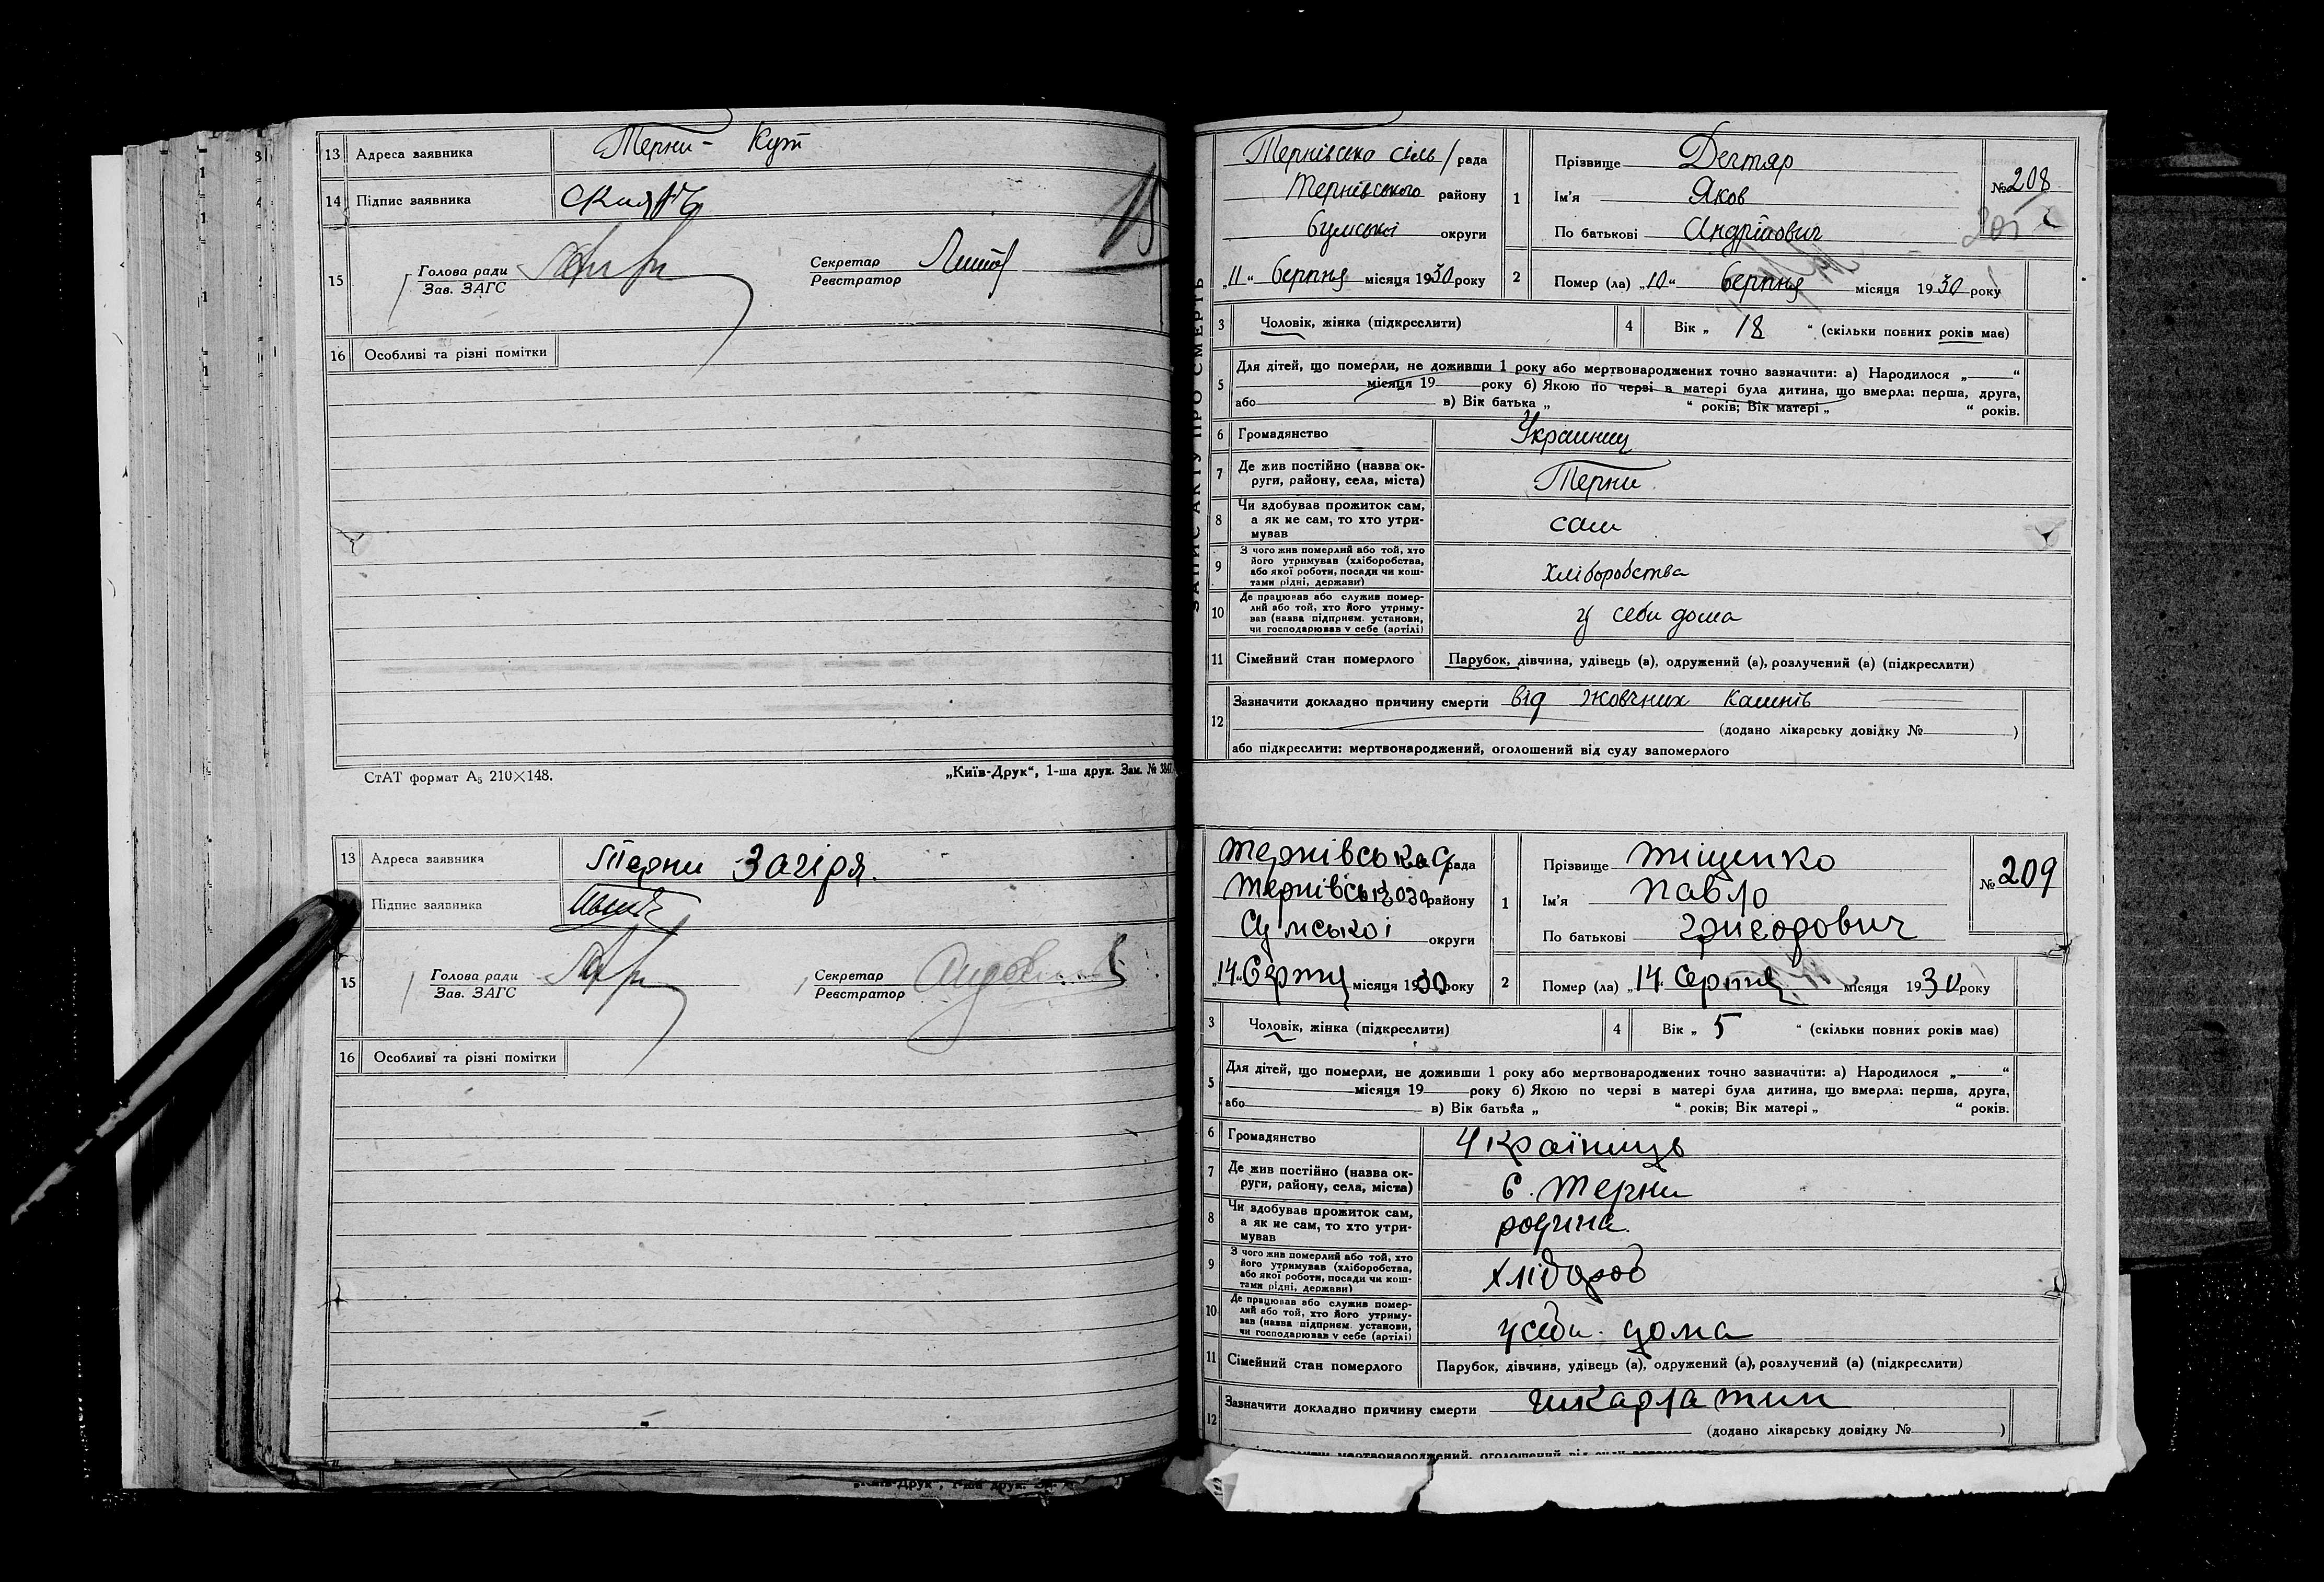 13 Адреса заявника Терни- Кут
14 Підпис заявника
15 Голова ради
Зав. ЗАГС
Секретар
Реєстратор
16 Особливі та різні помітки
СтАТ формат А5 210×148. „Київ-Друк“, 1-ша друк. Зам. № 3847.
13 Адреса заявника Терни Загіря.
14 Підпис заявника
15 Голова ради
Зав. ЗАГС
Секретар
Реєстратор
16 Особливі та різні помітки
„Київ-Друк“, 1-ша друк.
ЗАПИС АКТУ ПРО СМЕРТЬ
Тернівсько сіль/рада
Тернівського району
Сумської округи
„11“ Серпня місяця 1930 року
1 Прізвище Дегтяр
Ім'я Яков
По батькові Андрійович
№ 208
205
2 Помер (ла) „10“ Серпня місяця 1930 року
3 Чоловік, жінка (підкреслити)
4 Вік „ 18 “ (скільки повних років має)
5 Для дітей, що померли, не доживши 1 року або мертвонароджених точно зазначити: а) Народилося „ “
місяця 19 року б) Якою по черзі в матері була дитина, що вмерла: перша, друга,
або в) Вік батька „ “ років; Вік матері „ “ років.
6 Громадянство Украинец
7 Де жив постійно (назва ок-
руги, району, села, міста) Терни
8 Чи здобував прожиток сам,
а як не сам, то хто утри-
мував сам
9 З чого жив померлий або той, хто
його утримував (хліборобства,
або якої роботи, посади чи кош-
тами рідні, держави) Хліборобства
10 Де працював або служив помер-
лий або той, хто його утриму-
вав (назва підприєм. установи,
чи господарював у себе (артілі) у себи дома
11 Сімейний стан померлого Парубок, дівчина, удівець (а), одружений (а), розлучений (а) (підкреслити)
12 Зазначити докладно причину смерти від жовчних камнів
(додано лікарську довідку № )
або підкреслити: мертвонароджений, оголошений від суду запомерлого
Тернівська рада
Тернівського району
Сумської округи
„14“ Серпня місяця 1930 року
1 Прізвище Тіщенко
Ім'я Павло
По батькові Григорович
№ 209
2 Помер (ла) „14“ Серпня місяця 1930 року
3 Чоловік, жінка (підкреслити)
4 Вік „ 5 “ (скільки повних років має)
5 Для дітей, що померли, не доживши 1 року або мертвонароджених точно зазначити: а) Народилося „ “
місяця 19 року б) Якою по черзі в матері була дитина, що вмерла: перша, друга,
або в) Вік батька „ “ років; Вік матері „ “ років.
6 Громадянство Українець
7 Де жив постійно (назва ок-
руги, району, села, міста) С. Терни
8 Чи здобував прожиток сам,
а як не сам, то хто утри-
мував родина
9 З чого жив померлий або той, хто
його утримував (хліборобства,
або якої роботи, посади чи кош-
тами рідні, держави) Хлібороб
10 Де працював або служив помер-
лий або той, хто його утриму-
вав (назва підприєм. установи,
чи господарював у себе (артілі) у себи дома
11 Сімейний стан померлого Парубок, дівчина, удівець (а), одружений (а), розлучений (а) (підкреслити)
12 Зазначити докладно причину смерти
(додано лікарську довідку № )
мертвонароджений, оголошений від суду